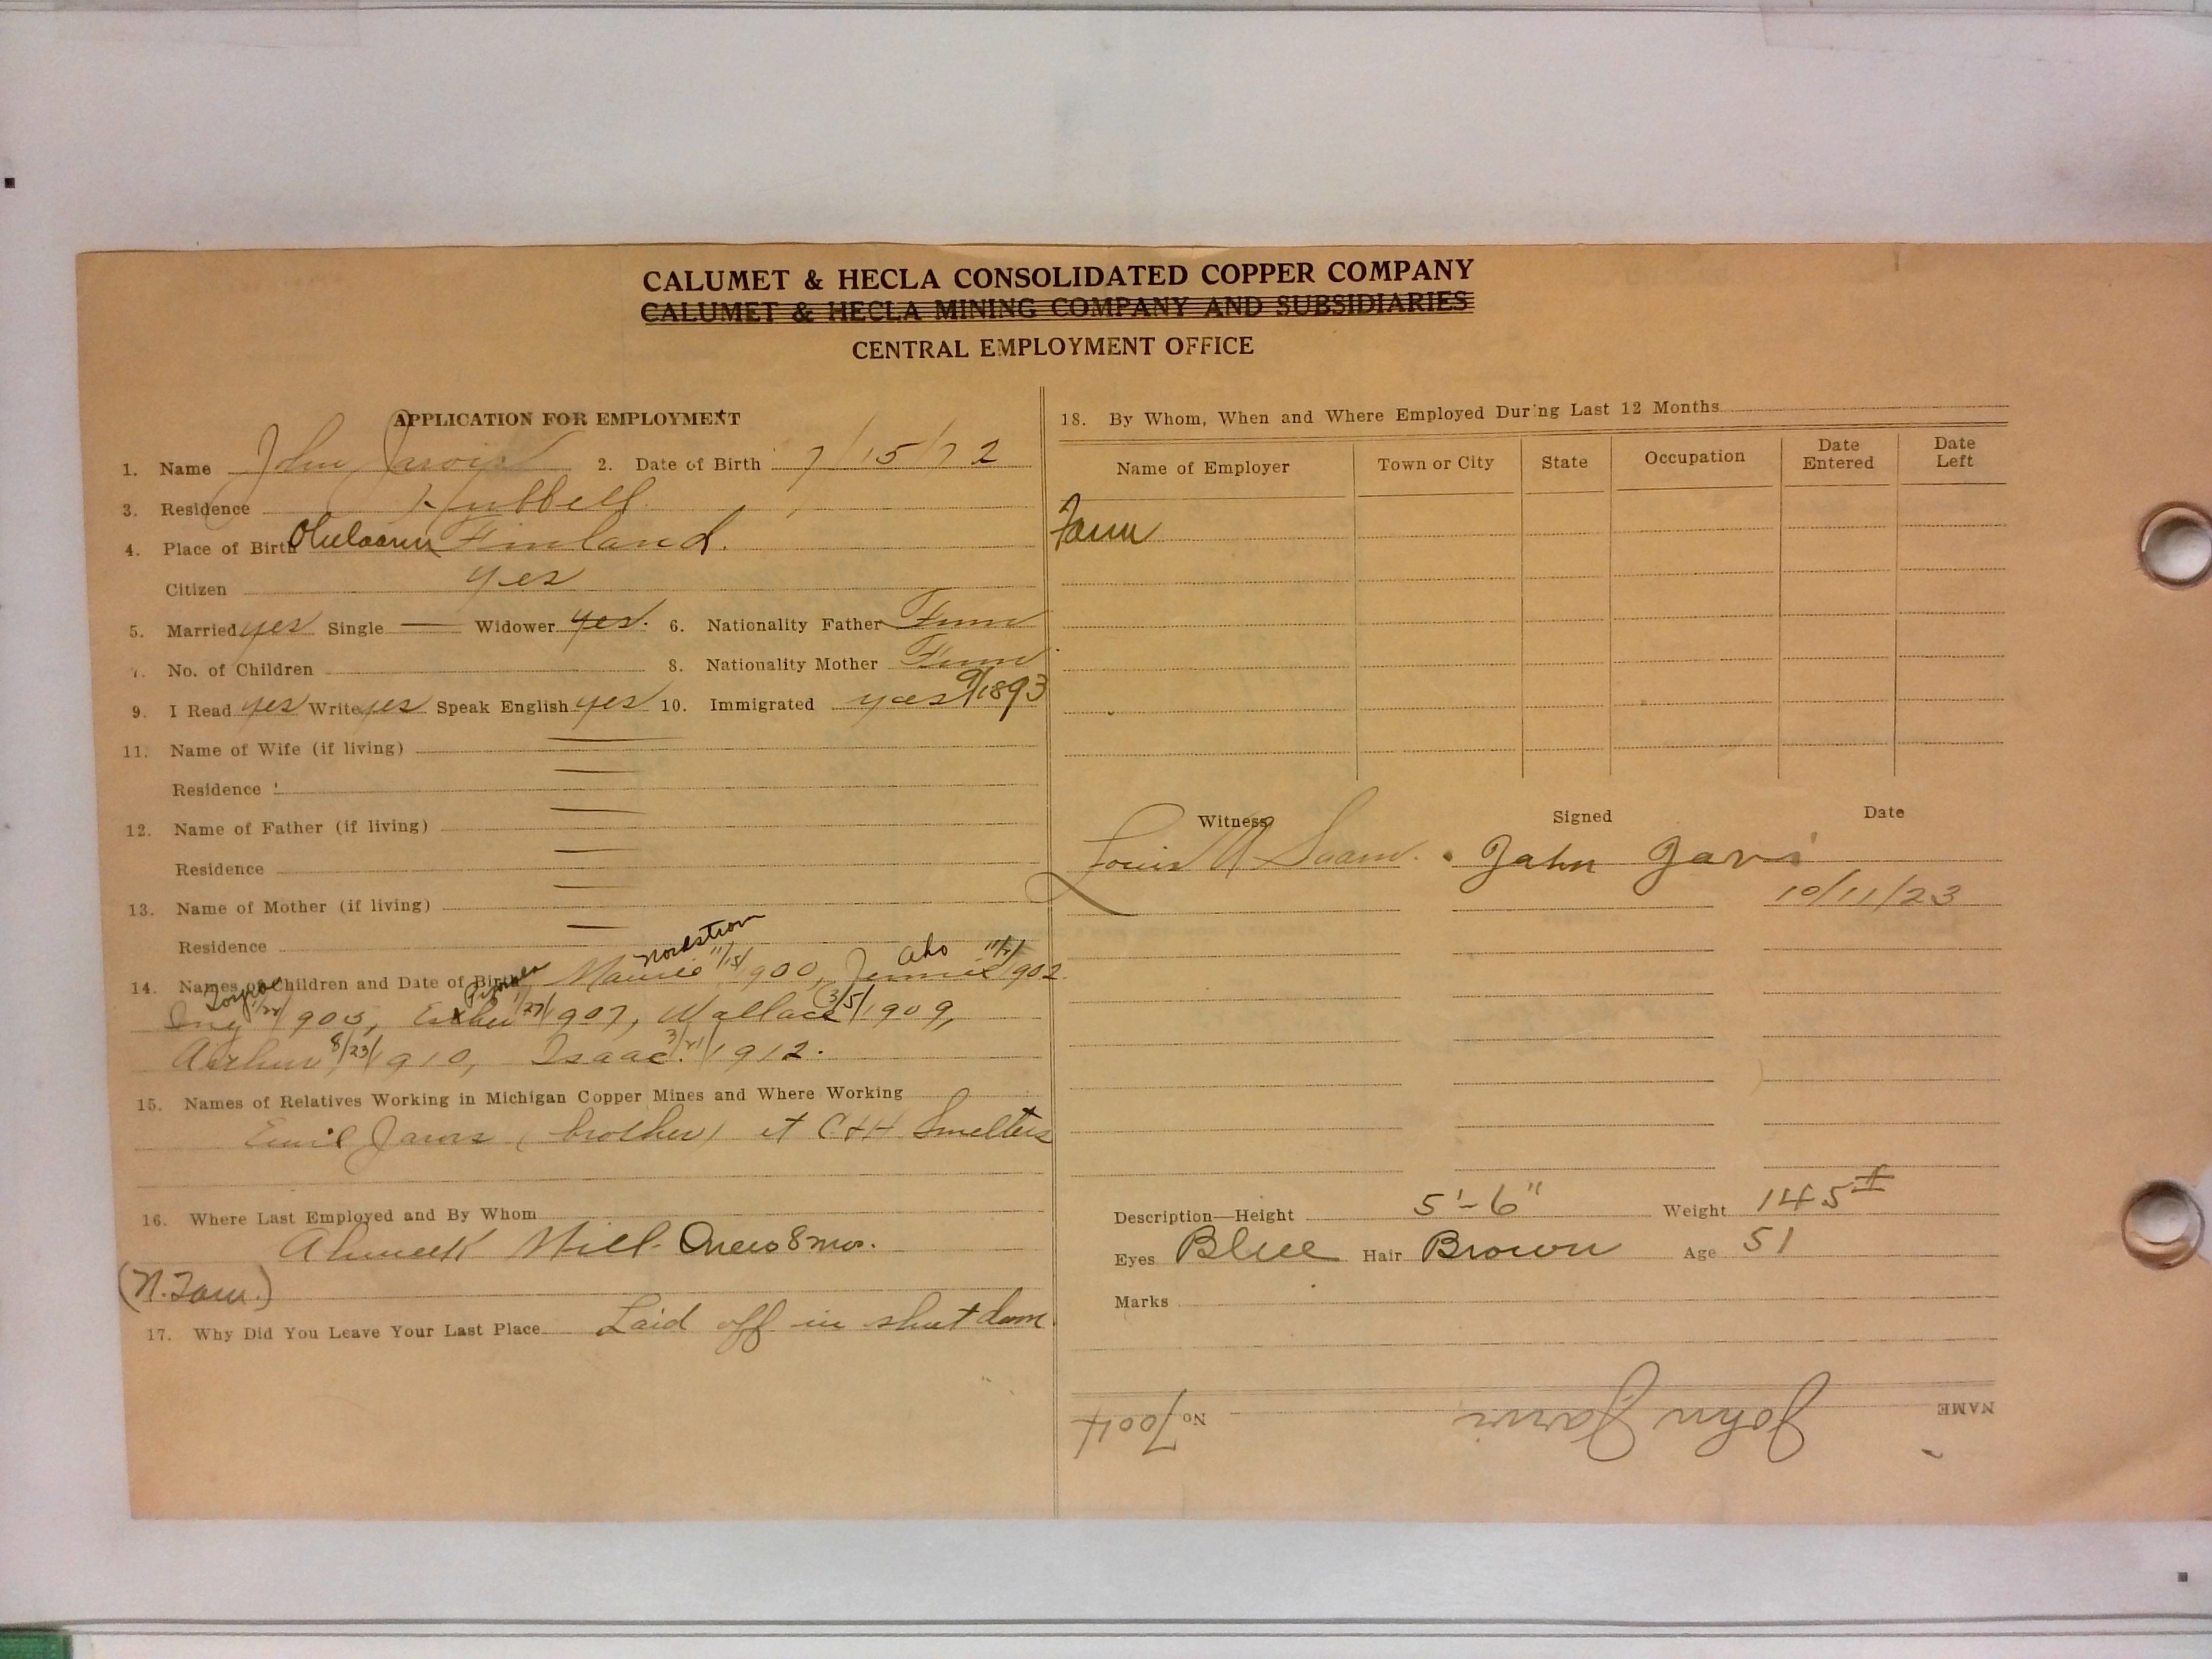 CALUMET & HECLA CONSOLIDATED COPPER COMPANY
CALUMET & HECLA MINING COMPANY AND SUBSIDIARIES
CENTRAL EMPLOYMENT OFFICE
APPLICATION FOR EMPLOYMENT
1. Name John Jarvi 2. Date of Birth 7/15/72
3. Residence Hubbell
4. Place of Birth Finland.
Citizen yes
5. Married yes Single — Widower yes. 6. Nationality Father Finn
7. No. of Children 8. Nationality Mother Finn
9. I Read yes Write yes Speak English yes 10. Immigrated yes 9/1893
11. Name of Wife (if living)
Residence
12. Name of Father (if living)
Residence
13. Name of Mother (if living)
Residence
Nordstrom Aho
14. Names of Children and Date of Birth Mamie 11/15/1900, Jennie 1902
1905, Esther 1/27/1907, Wallace 3/5/1909,
Arthur 8/23/1910, Isaac 3/21/1912.
15. Names of Relatives Working in Michigan Copper Mines and Where Working
Emil Jarvi (brother) at C&H Smelters
16. Where Last Employed and By Whom
Ahmeek Mill. Over 8 mos.
(N. Tam.)
17. Why Did You Leave Your Last Place Laid off in shut down
18. By Whom, When and Where Employed During Last 12 Months
Name of Employer Town or City State Occupation Date Entered Date Left
Farm
Witness Signed Date
Louis John Jarvi
10/11/23
Description—Height 5'-6" Weight 145#
Eyes Blue Hair Brown Age 51
Marks
NAME John Jarvi No 7004